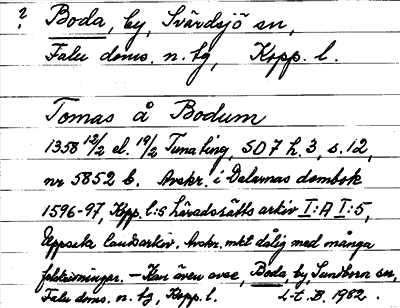 ? Boda, by, Svärdsjö sn,
Falu doms. n. tg, Kopp. l.
Tomas å Bodum
1358 12/2 el. 19/2 Tuna ting, SD 7 h. 3, s. 12,
nr 5852 b. Avskr. i Dalarnas dombok
1596-97, Kopp. l:s häradsrätts arkiv I:A I:5,
Uppsala landsarkiv. Avskr. mkt dålig med många
felskrivningar. – Kan även avse Boda by, Sundborn sn,
Falu doms. n. tg, Kopp. l. L-E. B. 1982.